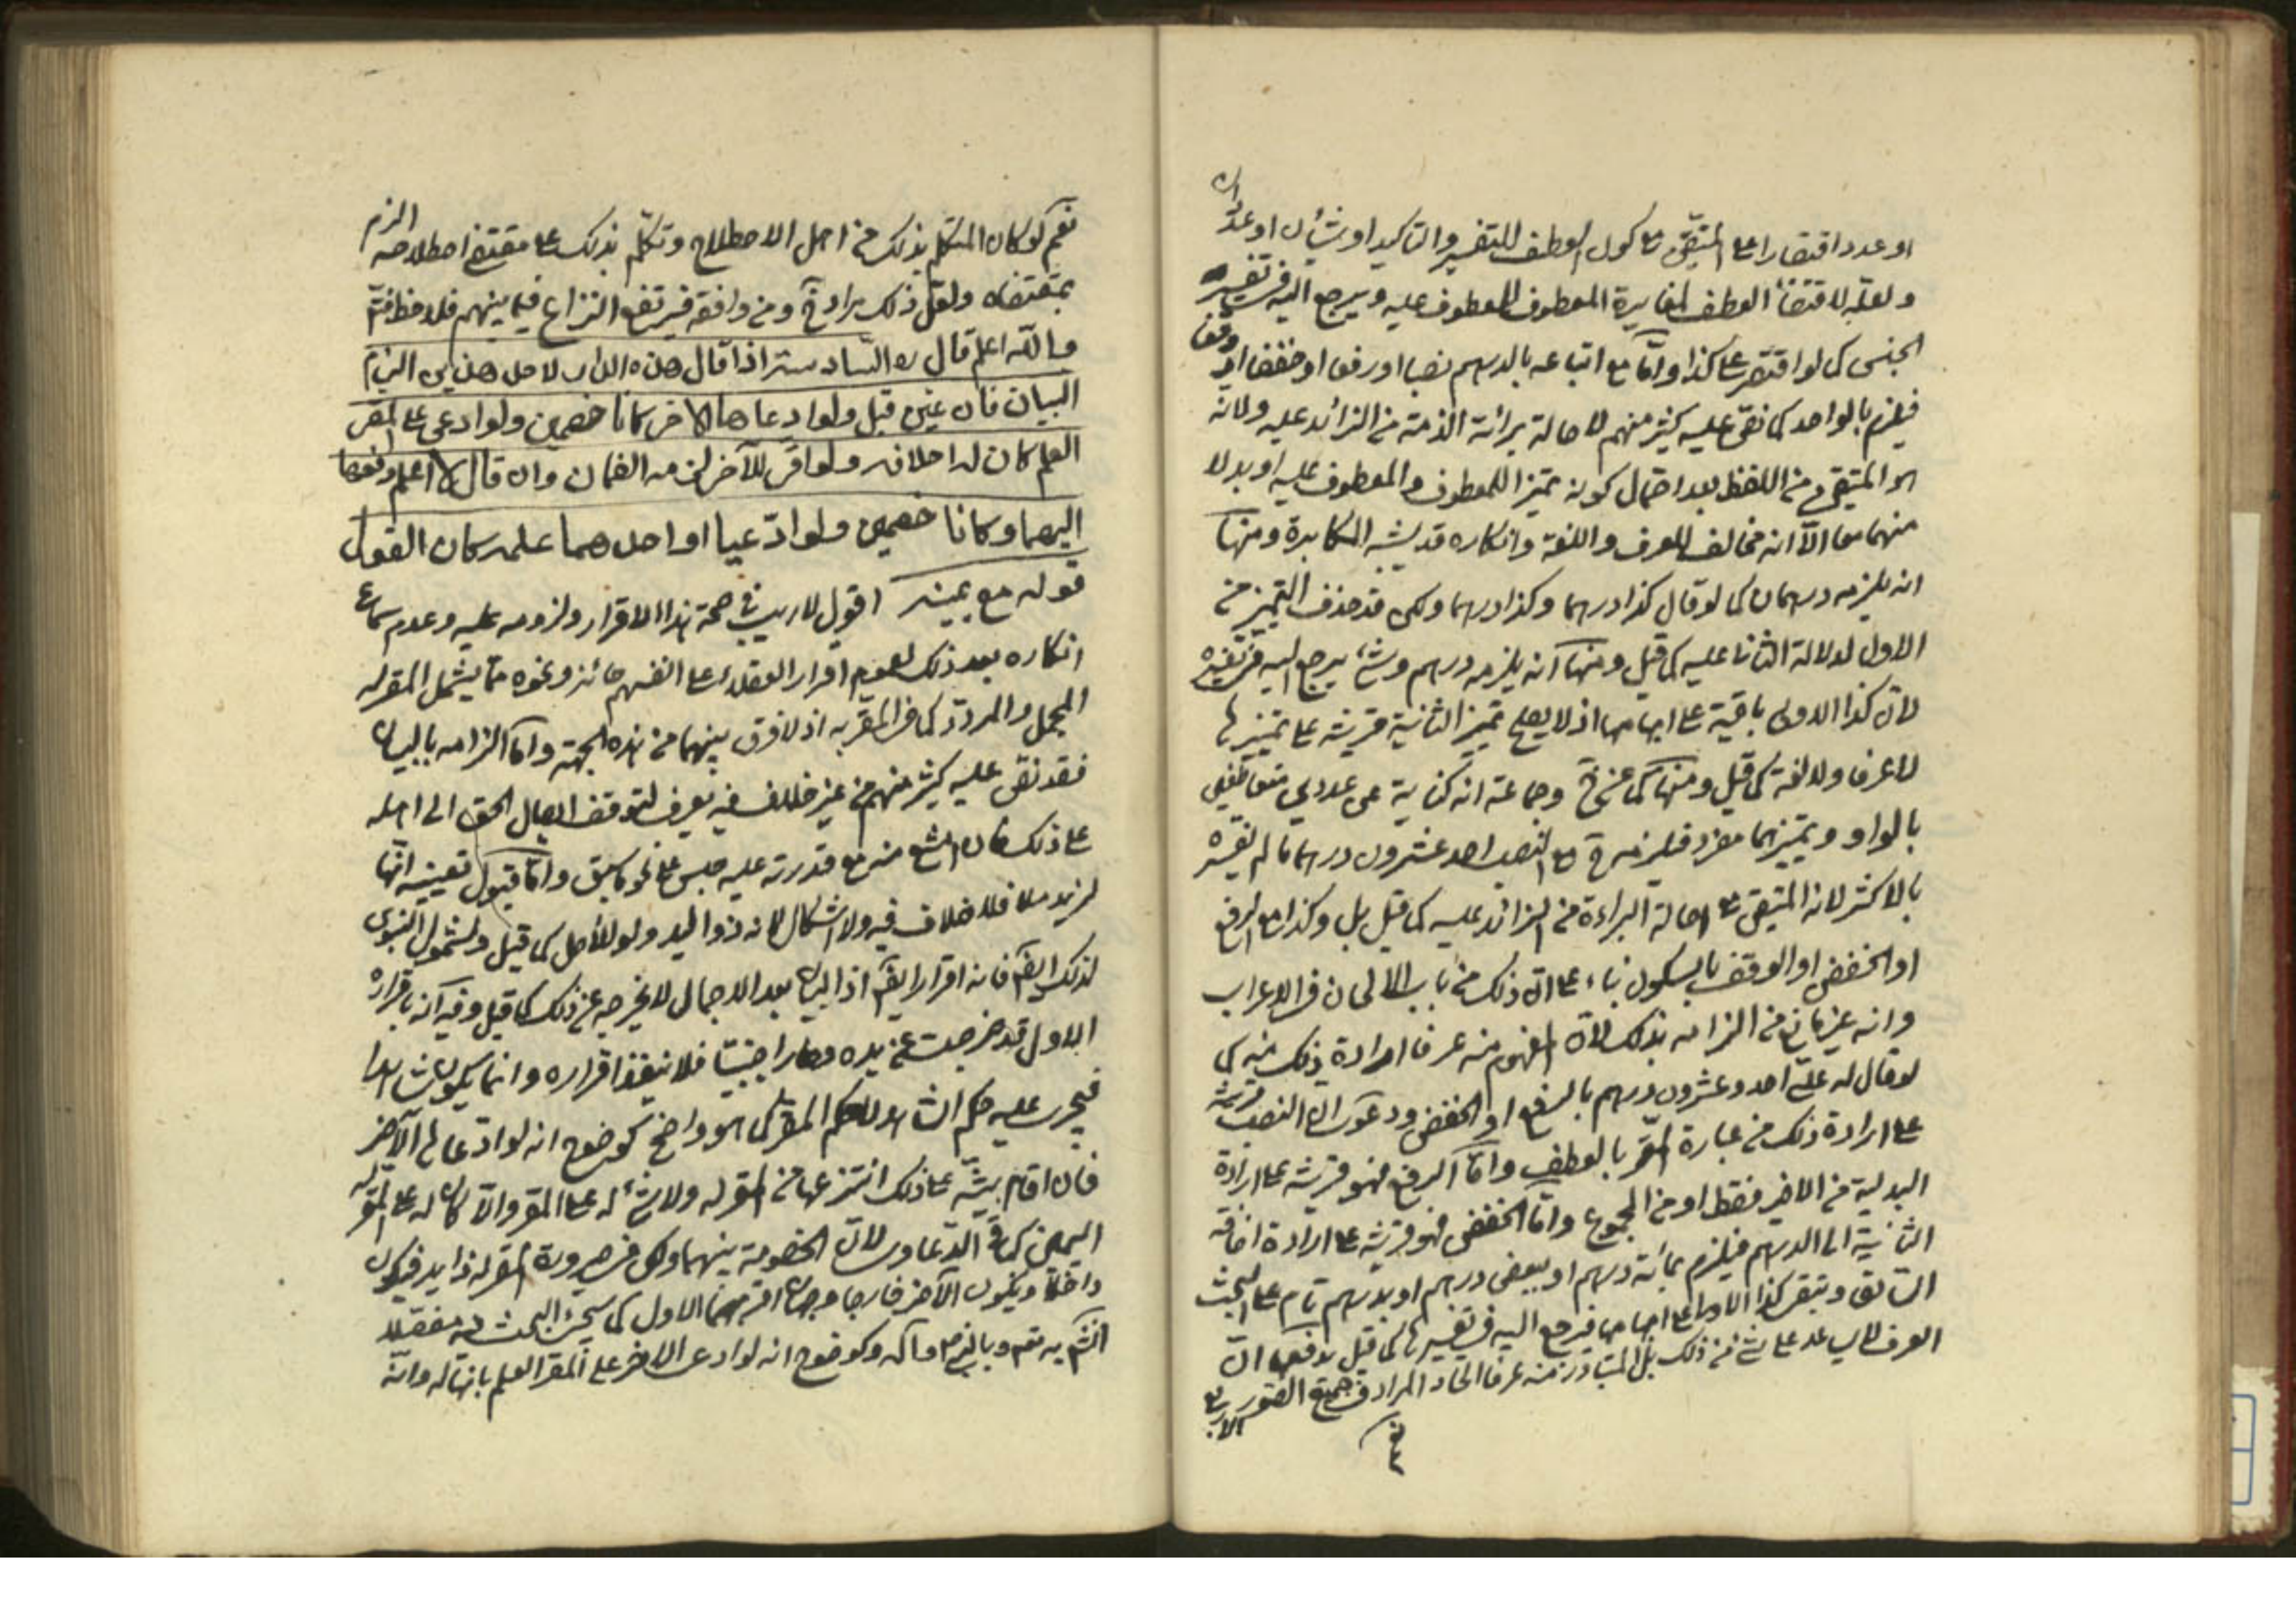 او عدد اقتصارا على المتيقن مع كون العطف للتفسير والتاكيد او شيئان او عددان
ولعله لاقتضاء العطف لمغايرة المعطوف للمعطوف عليه ويرجع اليه في تفسير
الجنس كما لو اقتصر على كذا وامّا مع اتباعه بالدرهم نصبا او رفعا او خفضا او وقفا
فيلزم بالواحد كما نص عليه كثير منهم لاصالة برائة الذمة من الزائد عليه ولانه
هو المتيقن من اللفظ بعد احتمال كونه تميزا للمعطوف والمعطوف عليه او بدلا
منهما معا الّا انه مخالف للعرف واللغة وانكاره قد يشبه المكابرة ومنها
انه يلزمه درهمان كما لو قال كذا درهما وكذا درهما ولكن قد حذف التميز من
الاول لدلالة الثانى عليه كما قيل ومنها انه يلزمه درهم وشئ يرجع اليه في تفسيره
لانّ كذا الاولى باقية على ابهامها اذ لا يصلح تميز الثانية قرينة على تميزها
لا عرفا ولا لغة كما قيل ومنها كما عن خ وجماعة انه كناية عن عددين متعاطفين
بالواو وتميزهما مفرد فيلزمه ح مع النصب احد عشرون درهما ما لم يفسره
بالاكثر لانه المتيقن مع اصالة البراءة من الزائد عليه كما قيل بل وكذا مع الرفع
او الخفض او الوقف بالسكون بناء على ان ذلك من باب الالحان في الاعراب
وانه غير مانع من الزامه بذلك لان المفهوم منه عرفا ارادة ذلك منه كما
لو قال له علىّ احد وعشرون درهم بالرفع او الخفض ودعوى ان النصب قرينة
على ارادة ذلك من عبارة المقر بالعطف وامّا الرفع فهو قرينة على ارادة
البدلية من الاخير فقط او من المجموع وامّا الخفض فهو قرينة على ارادة اضافة
الثانية الى الدرهم فيلزم بمائة درهم او ببعض درهم او بدرهم تام على البحث
السابق وتبقى كذا الاولى على ابهامها فيرجع اليه في تفسيرها كما قيل يدفعها انّ
العرف لا يساعد على شئ من ذلك بل المتبادر منه عرفا اتحاد المراد في جميع الصور الاربع
نعم
نعم لو كان المتكلم بذلك من اهل الاصطلاح وتكلّم بذلك على مقتضى اصطلاحه الزم
بمقتضاه ولعلّ ذلك مراد خ ومن وافقه فيرتفع النزاع فيما بينهم فلاحظ فتم
والله اعلم قال ره السادسة اذا قال هذه الدار لاحد هذين الزم
البيان فان عين قبل ولو ادعاها الاخر كانا خصمين ولو ادعى على المقر
العلم كان له احلافه ولو اقر للآخر لزمه الضمان وان قال لا اعلم دفعها
اليهما وكانا خصمين ولو ادّعيا او احدهما علمه كان القول
قوله مع يمينه اقول لا ريب في صحة هذا الاقرار ولزومه عليه وعدم سماع
انكاره بعد ذلك لعموم اقرار العقلاء على انفسهم جائز ونحوه ممّا يشمل المقر له
المجمل والمردّد كما في المقر به اذ لا فرق بينهما من هذه الجهة وامّا الزامه بالبيان
فقد نص عليه كثير منهم من غير خلاف فيه يعرف لتوقف ايصال الحق الى اهله
على ذلك فان امتنع منه مع قدرته عليه حبس على نحو ما سبق وامّا قبول تعيينه انّها
لزيد مثلا فلا خلاف فيه ولا اشكال لانه ذو اليد ولو للاصل كما قيل ولشمول النبوى
لذلك ايضا فانه اقرار ايضا اذ البيان بعد الاجمال لا يخرجه عن ذلك كما قيل وفيه انه باقراره
الاول قد خرجت عن يده وصار اجنبيّا فلا ينفذ اقراره وانما يكون شاهدا
فيجرى عليه حكم الشاهد لا حكم المقر كما هو واضح كوضوح انه لو ادّعاها الآخر
فان اقام بيّنة على ذلك انتزعها من المقر له ولا شئ له على المقر والّا كان له على المقر له
اليمين كما في الدعاوى لانّ الخصومة بينهما ولكن في صيرورة المقر له ذا يد فيكون
داخلا ويكون الآخر خارجا وجهان اقربهما الاول كما سيجئ البحث فيه مفصّلا
وكوضوح انه لو ادعى الاخر على المقر العلم بانها له وانّه